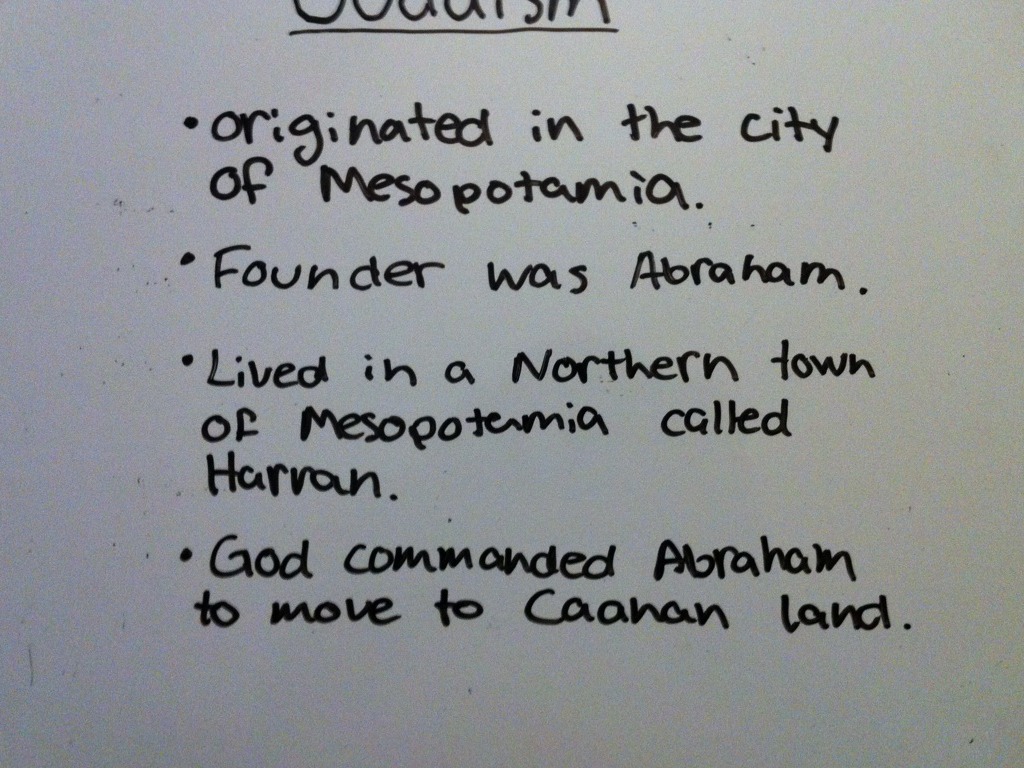 Judaism
• originated in the city
of Mesopotamia.
• Founder was Abraham.
• Lived in a Northern town
of Mesopotamia called
Harran.
• God commanded Abraham
to move to Caanan land.